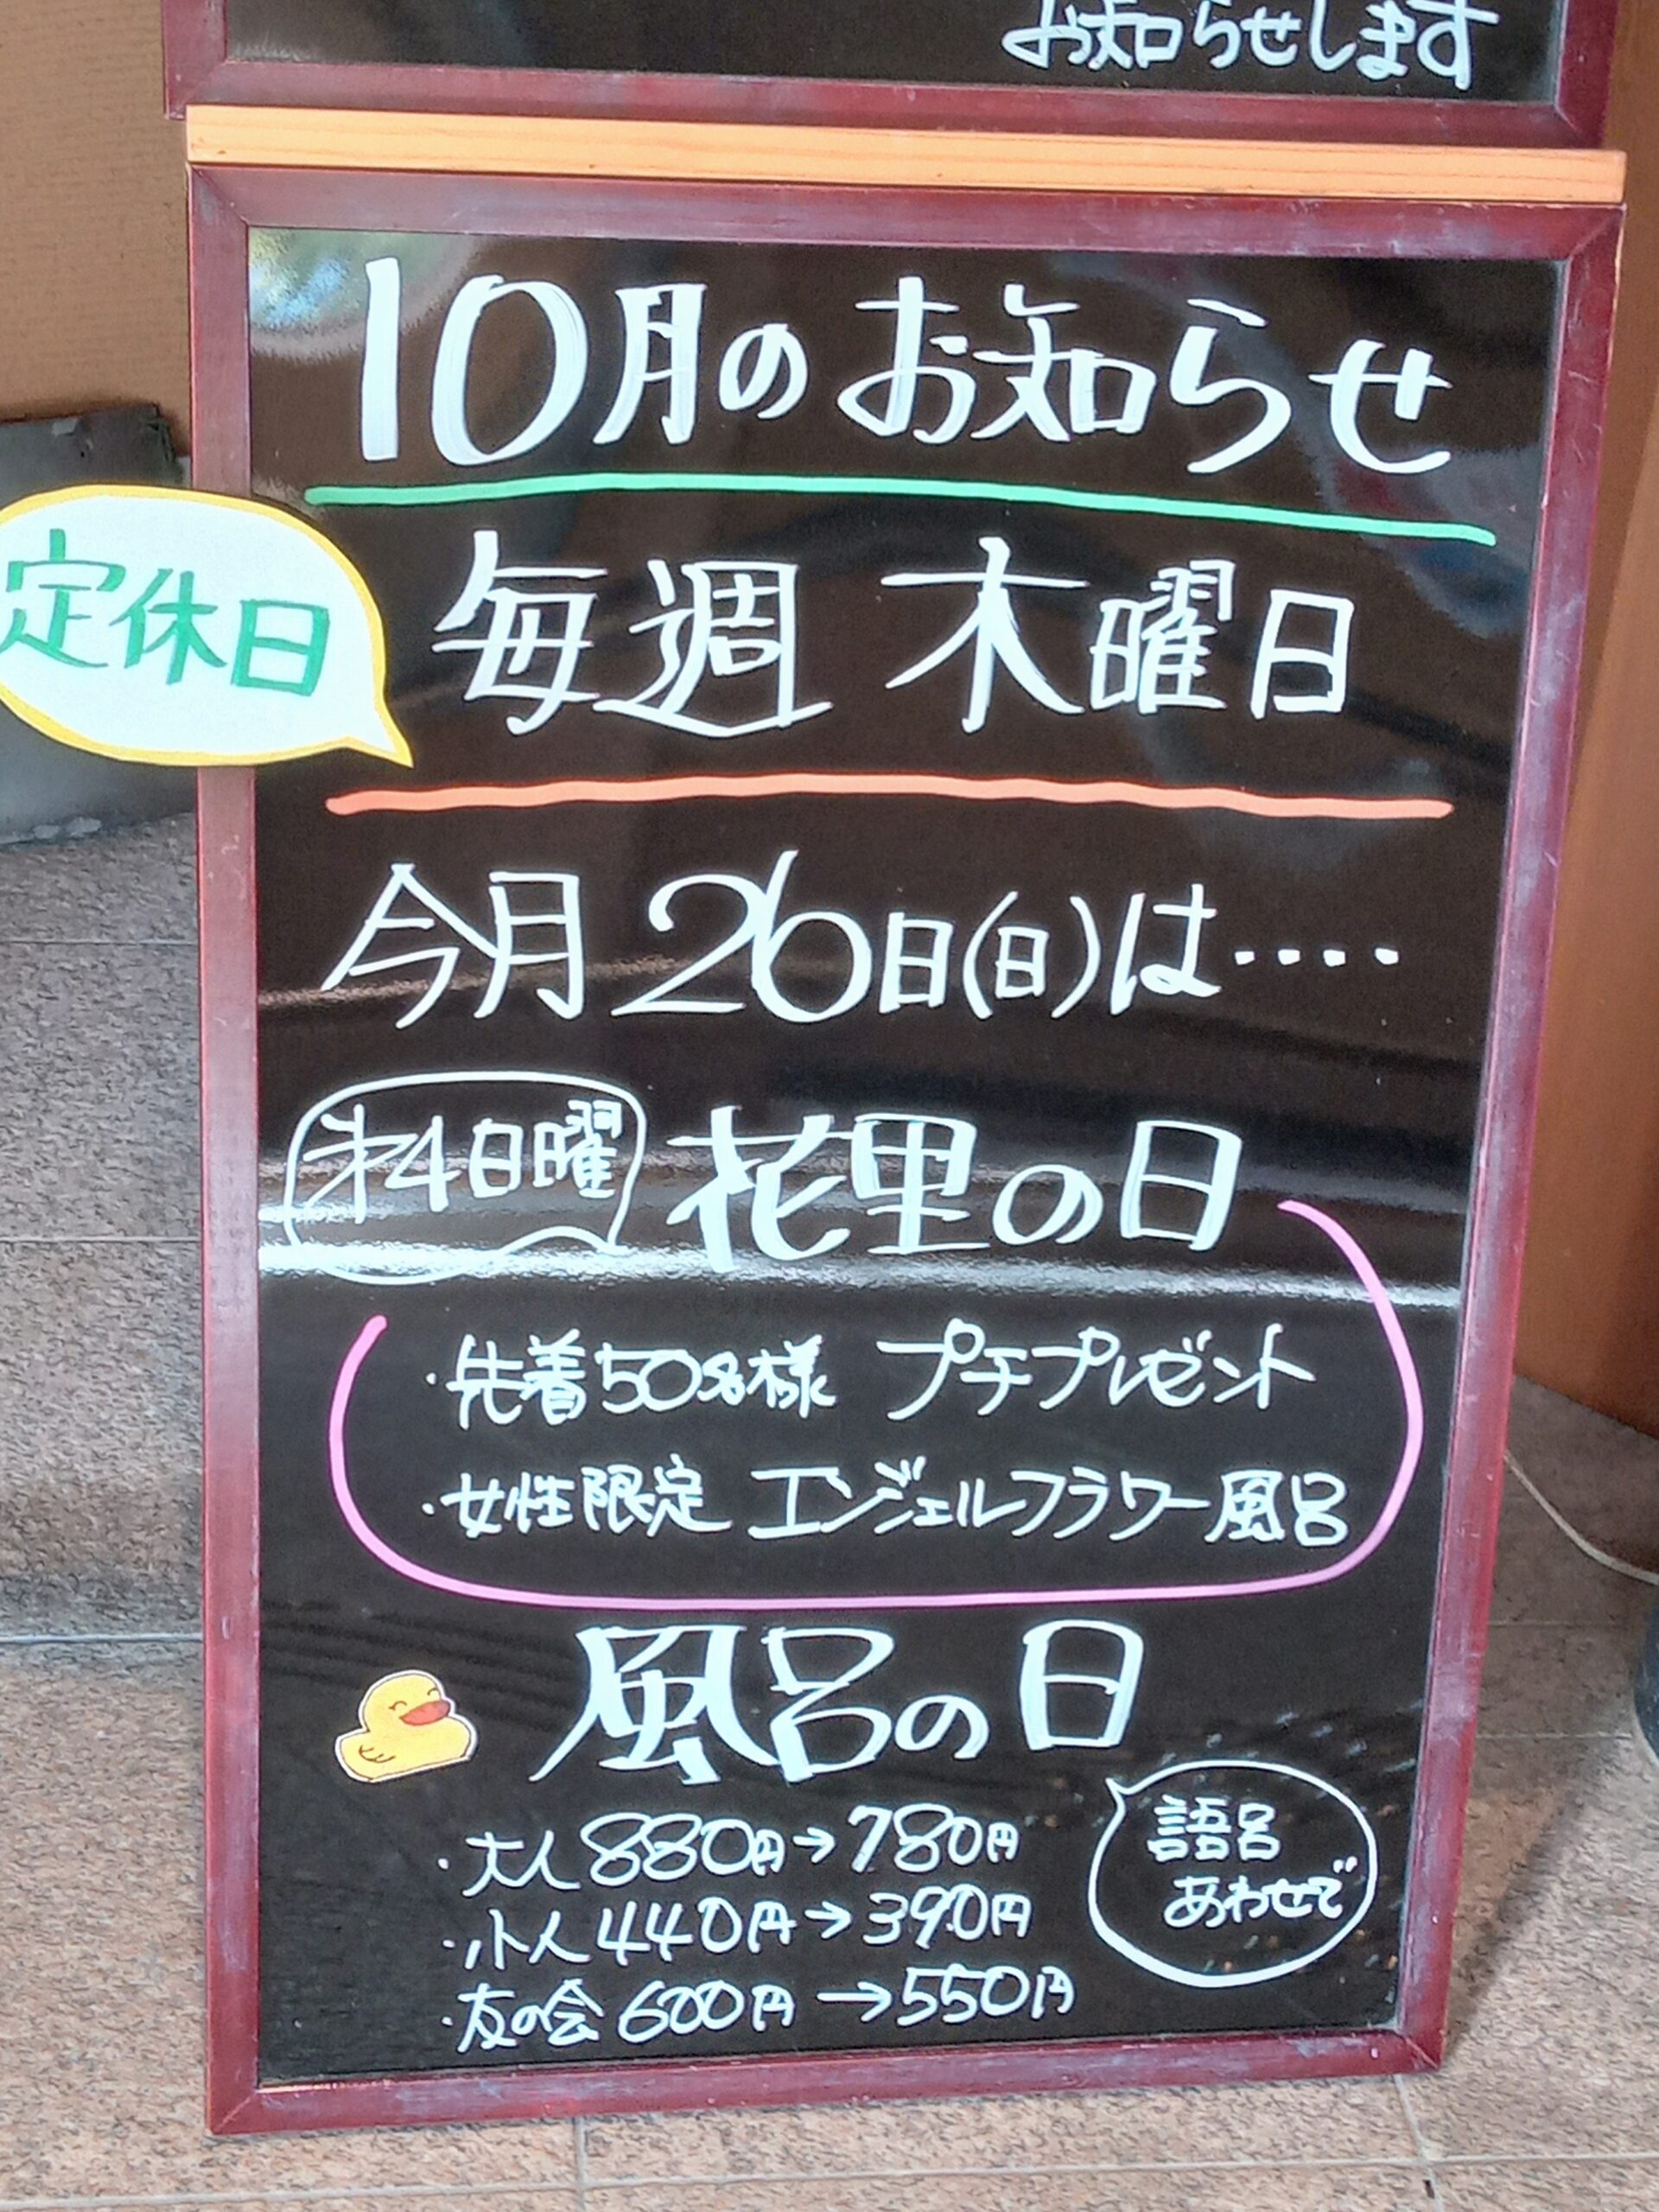 お知らせします
10月のお知らせ
定休日
毎週 木曜日
今月26日(日)は‥‥
才4日曜 花里の日
・先着50名様 プチプレゼント
・女性限定 エンジェルフラワー風呂
風呂の日
・大人880円→780円
・小人440円→390円
・友の会600円→550円
語呂
あわせで